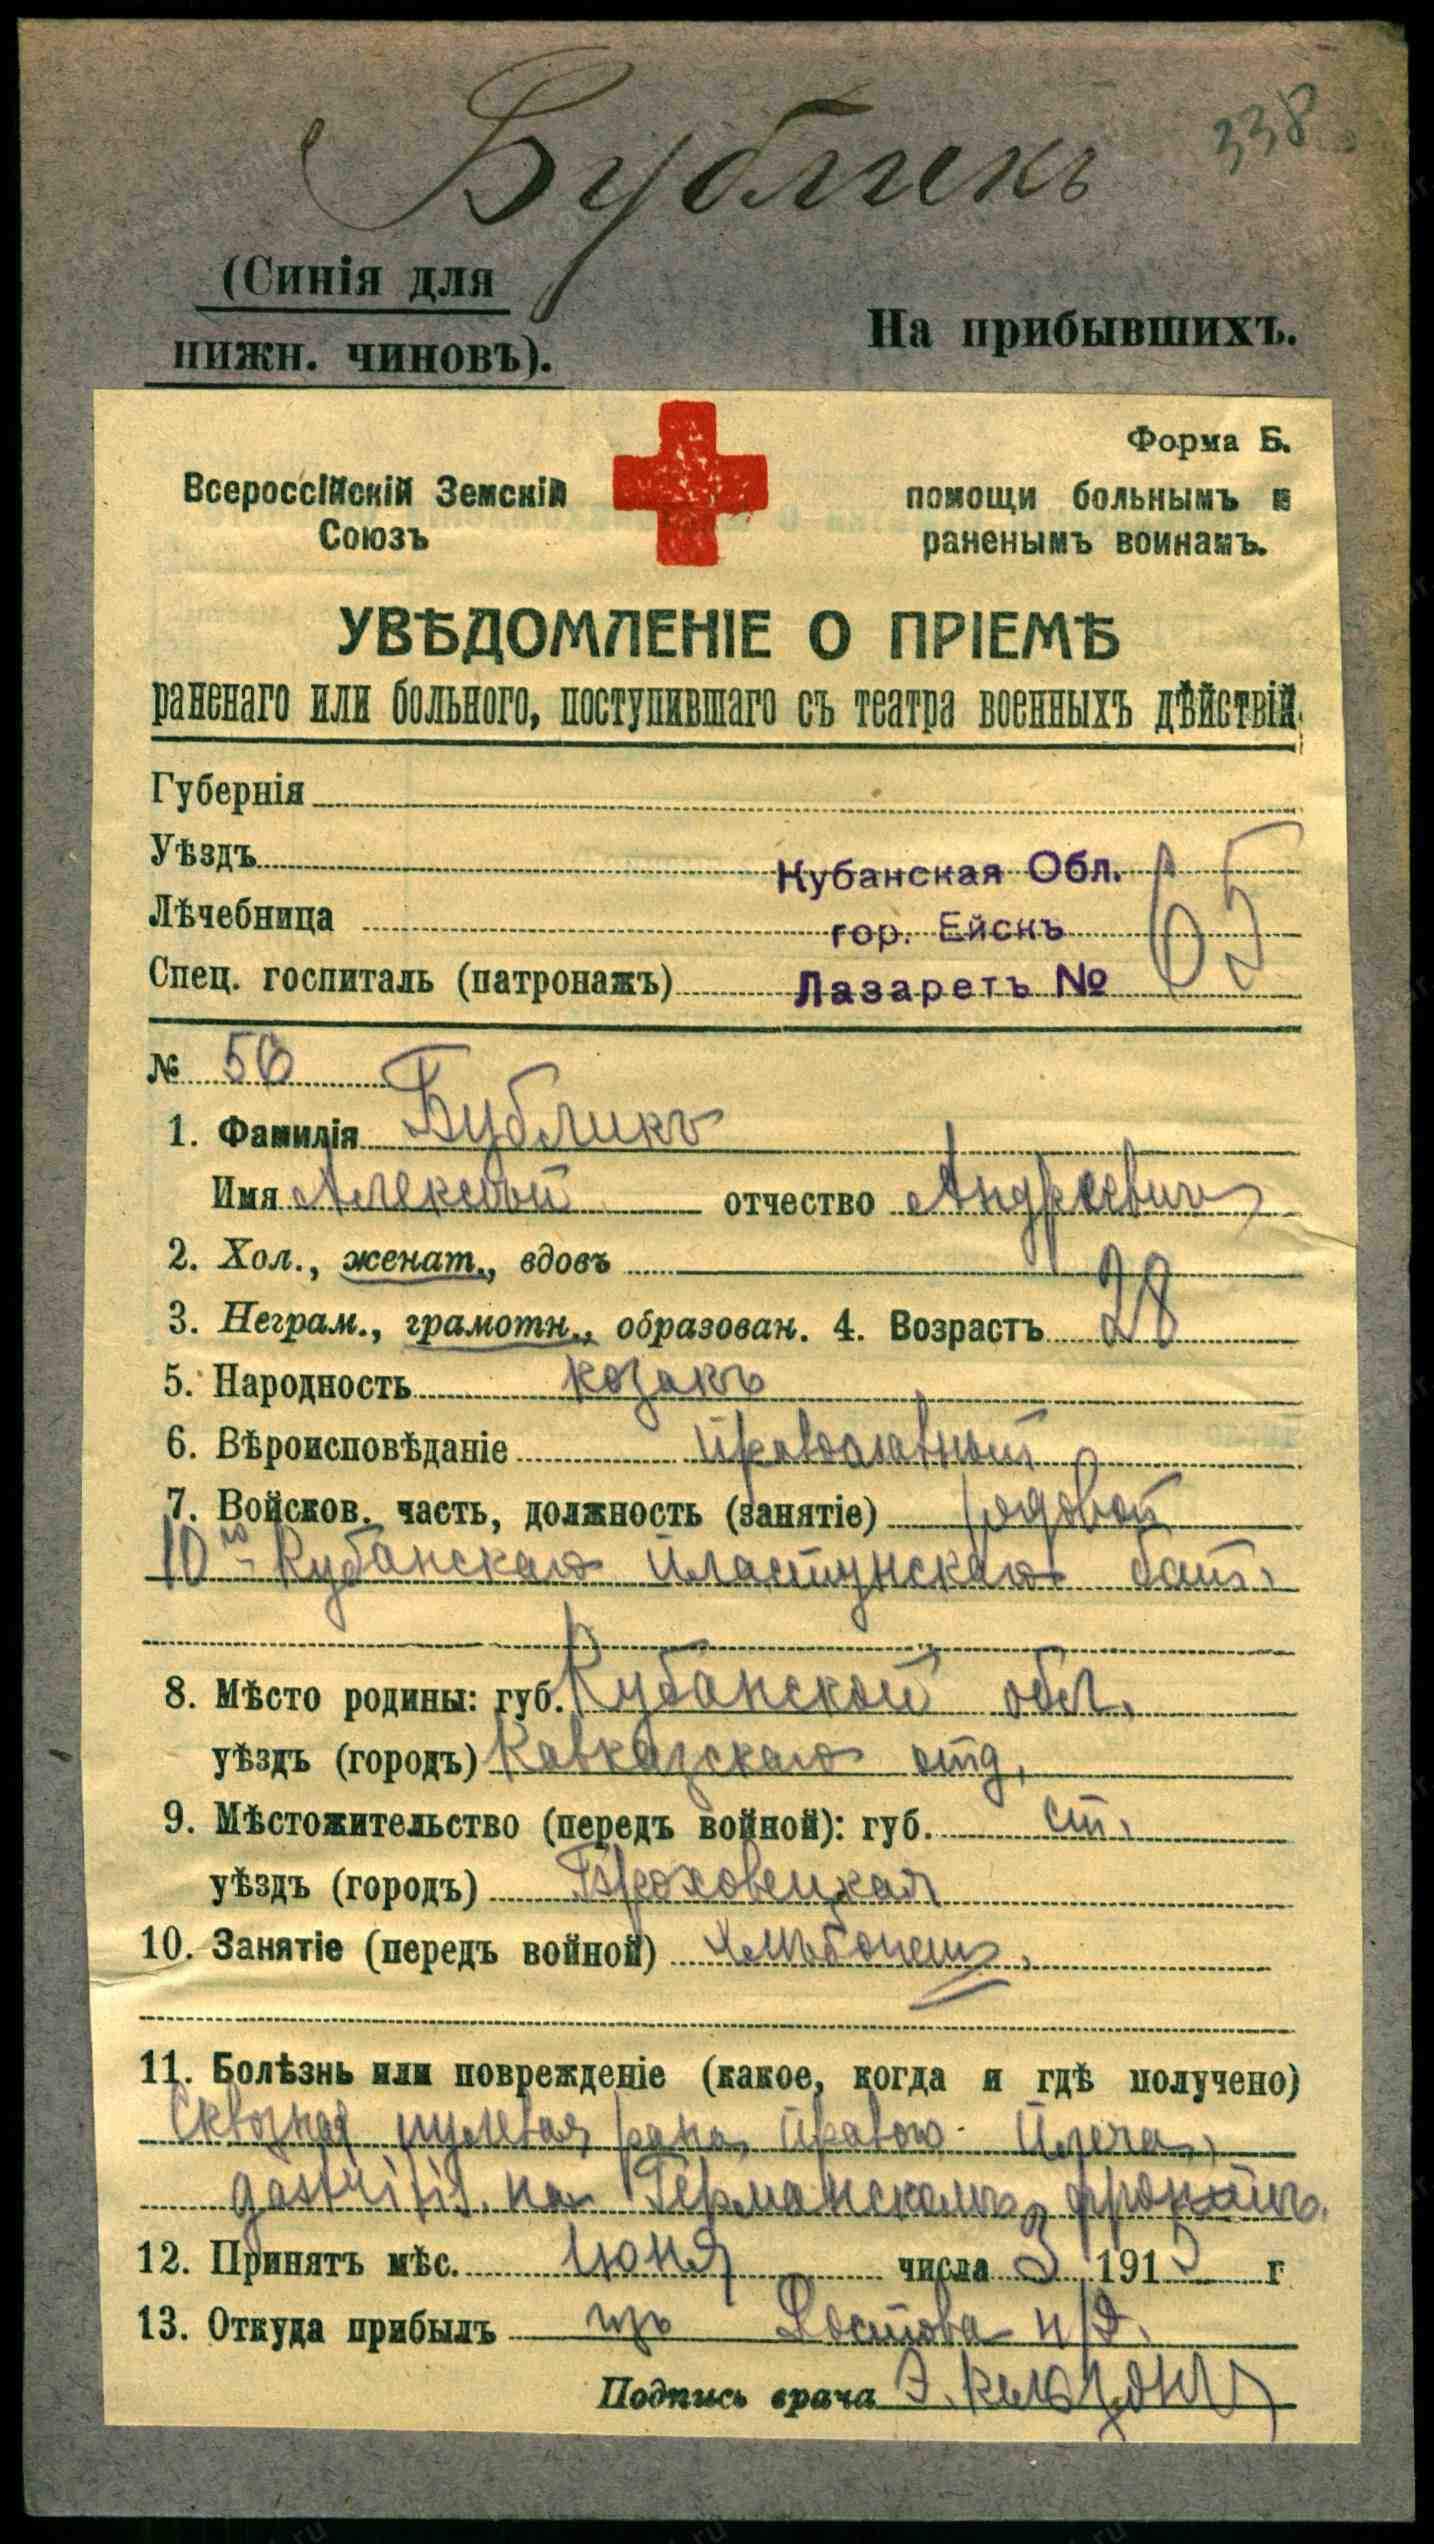 338
Бубликъ
(Синія для
нижн. чиновъ).
На прибывшихъ.
Форма Б.
Всероссійскій Земскій
Союзъ
помощи больнымъ и
раненымъ воинамъ.
УВѢДОМЛЕНІЕ О ПРІЕМѢ
раненаго или больного, поступившаго съ театра военныхъ дѣйствій.
Губернія
Уѣздъ Кубанская Обл.
Лѣчебница гор. Ейскъ
Спец. госпиталь (патронажъ) Лазаретъ № 65
№ 56
1. Фамилія Бубликъ
Имя Алексѣй отчество Андреевичъ
2. Хол., женат., вдовъ
3. Неграм., грамотн., образован. 4. Возрастъ 28
5. Народность козакъ
6. Вѣроисповѣданіе православный
7. Войсков. часть, должность (занятіе) рядовой
10го Кубанскаго Пластунскаго бат.
8. Мѣсто родины: губ. Кубанской обл.
уѣздъ (городъ) Кавказскаго отд.
9. Мѣстожительство (передъ войной): губ. ст.
уѣздъ (городъ) Брюховецкая
10. Занятіе (передъ войной)
11. Болѣзнь или поврежденіе (какое, когда и гдѣ получено)
Сквозная пулевая рана праваго плеча,
gastritis. на Германскомъ фронтѣ.
12. Принятъ мѣс. Іюня числа 3 1915 г
13. Откуда прибылъ изъ Ростова н/Д.
Подпись врача Э.